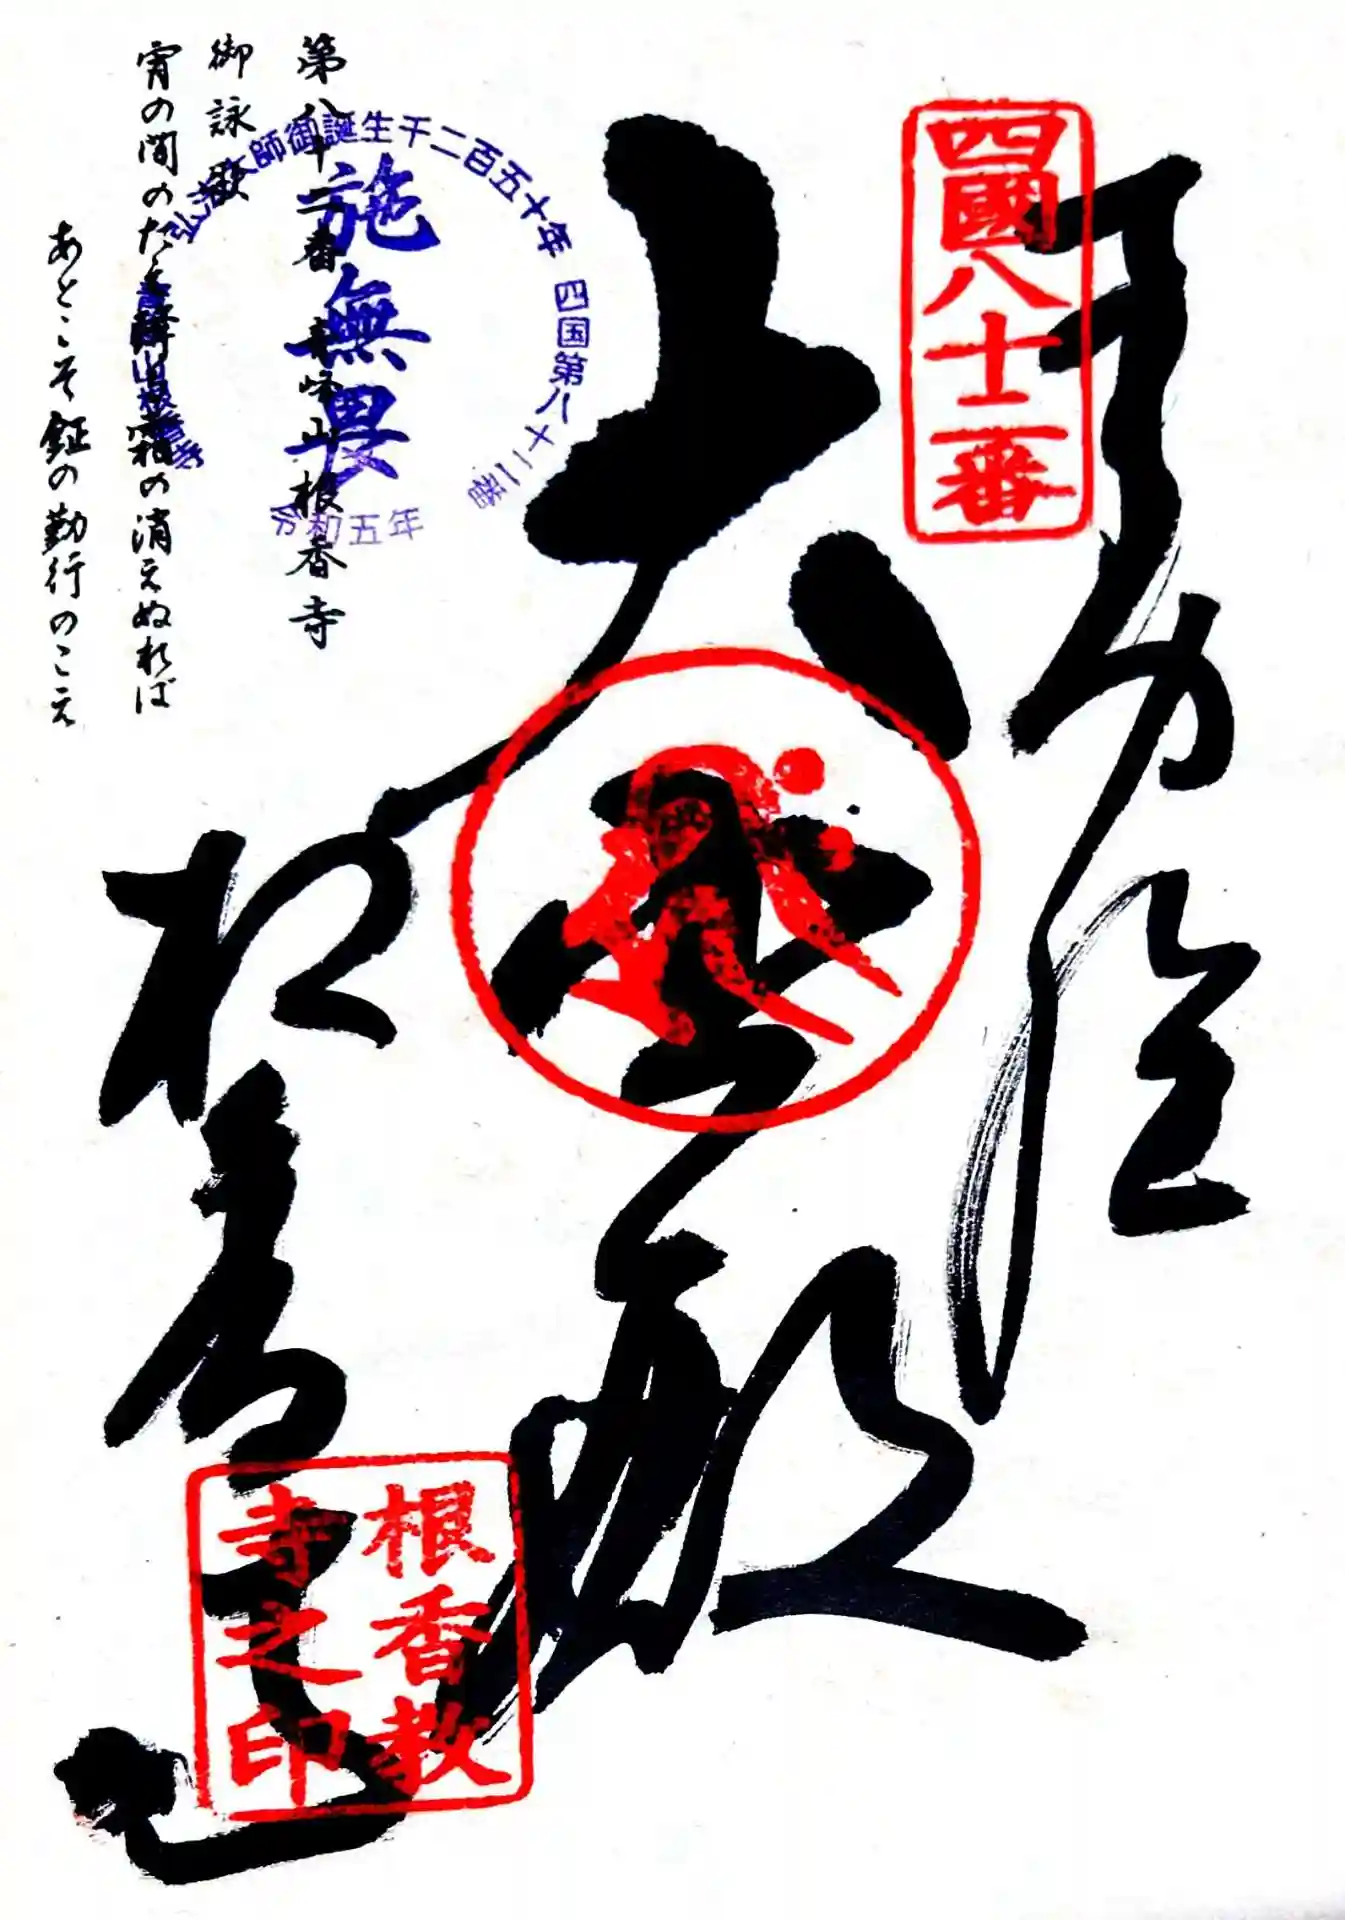 四國八十二番
大悲殿
根香寺
根香教
寺之印
第八十二番 青峰山 根香寺
御詠歌
宵の間のたえ降る霜の消えぬれば
あとこそ鉦の勤行のこえ
弘法大師御誕生千二百五十年 四国第八十二番
施無畏
令和五年
青峰山根香寺